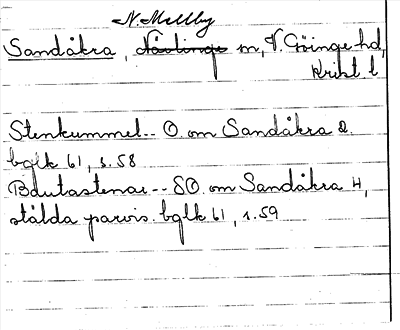 N. Mellby
Sandåkra, Nävlinge m, V. Göinge hd,
Krist l
Stenkummel-- O. om Sandåkra 2.
bglk 61, s. 58
Bautastenar-- SO. om Sandåkra 4,
stälda parvis. bglk 61, s. 59